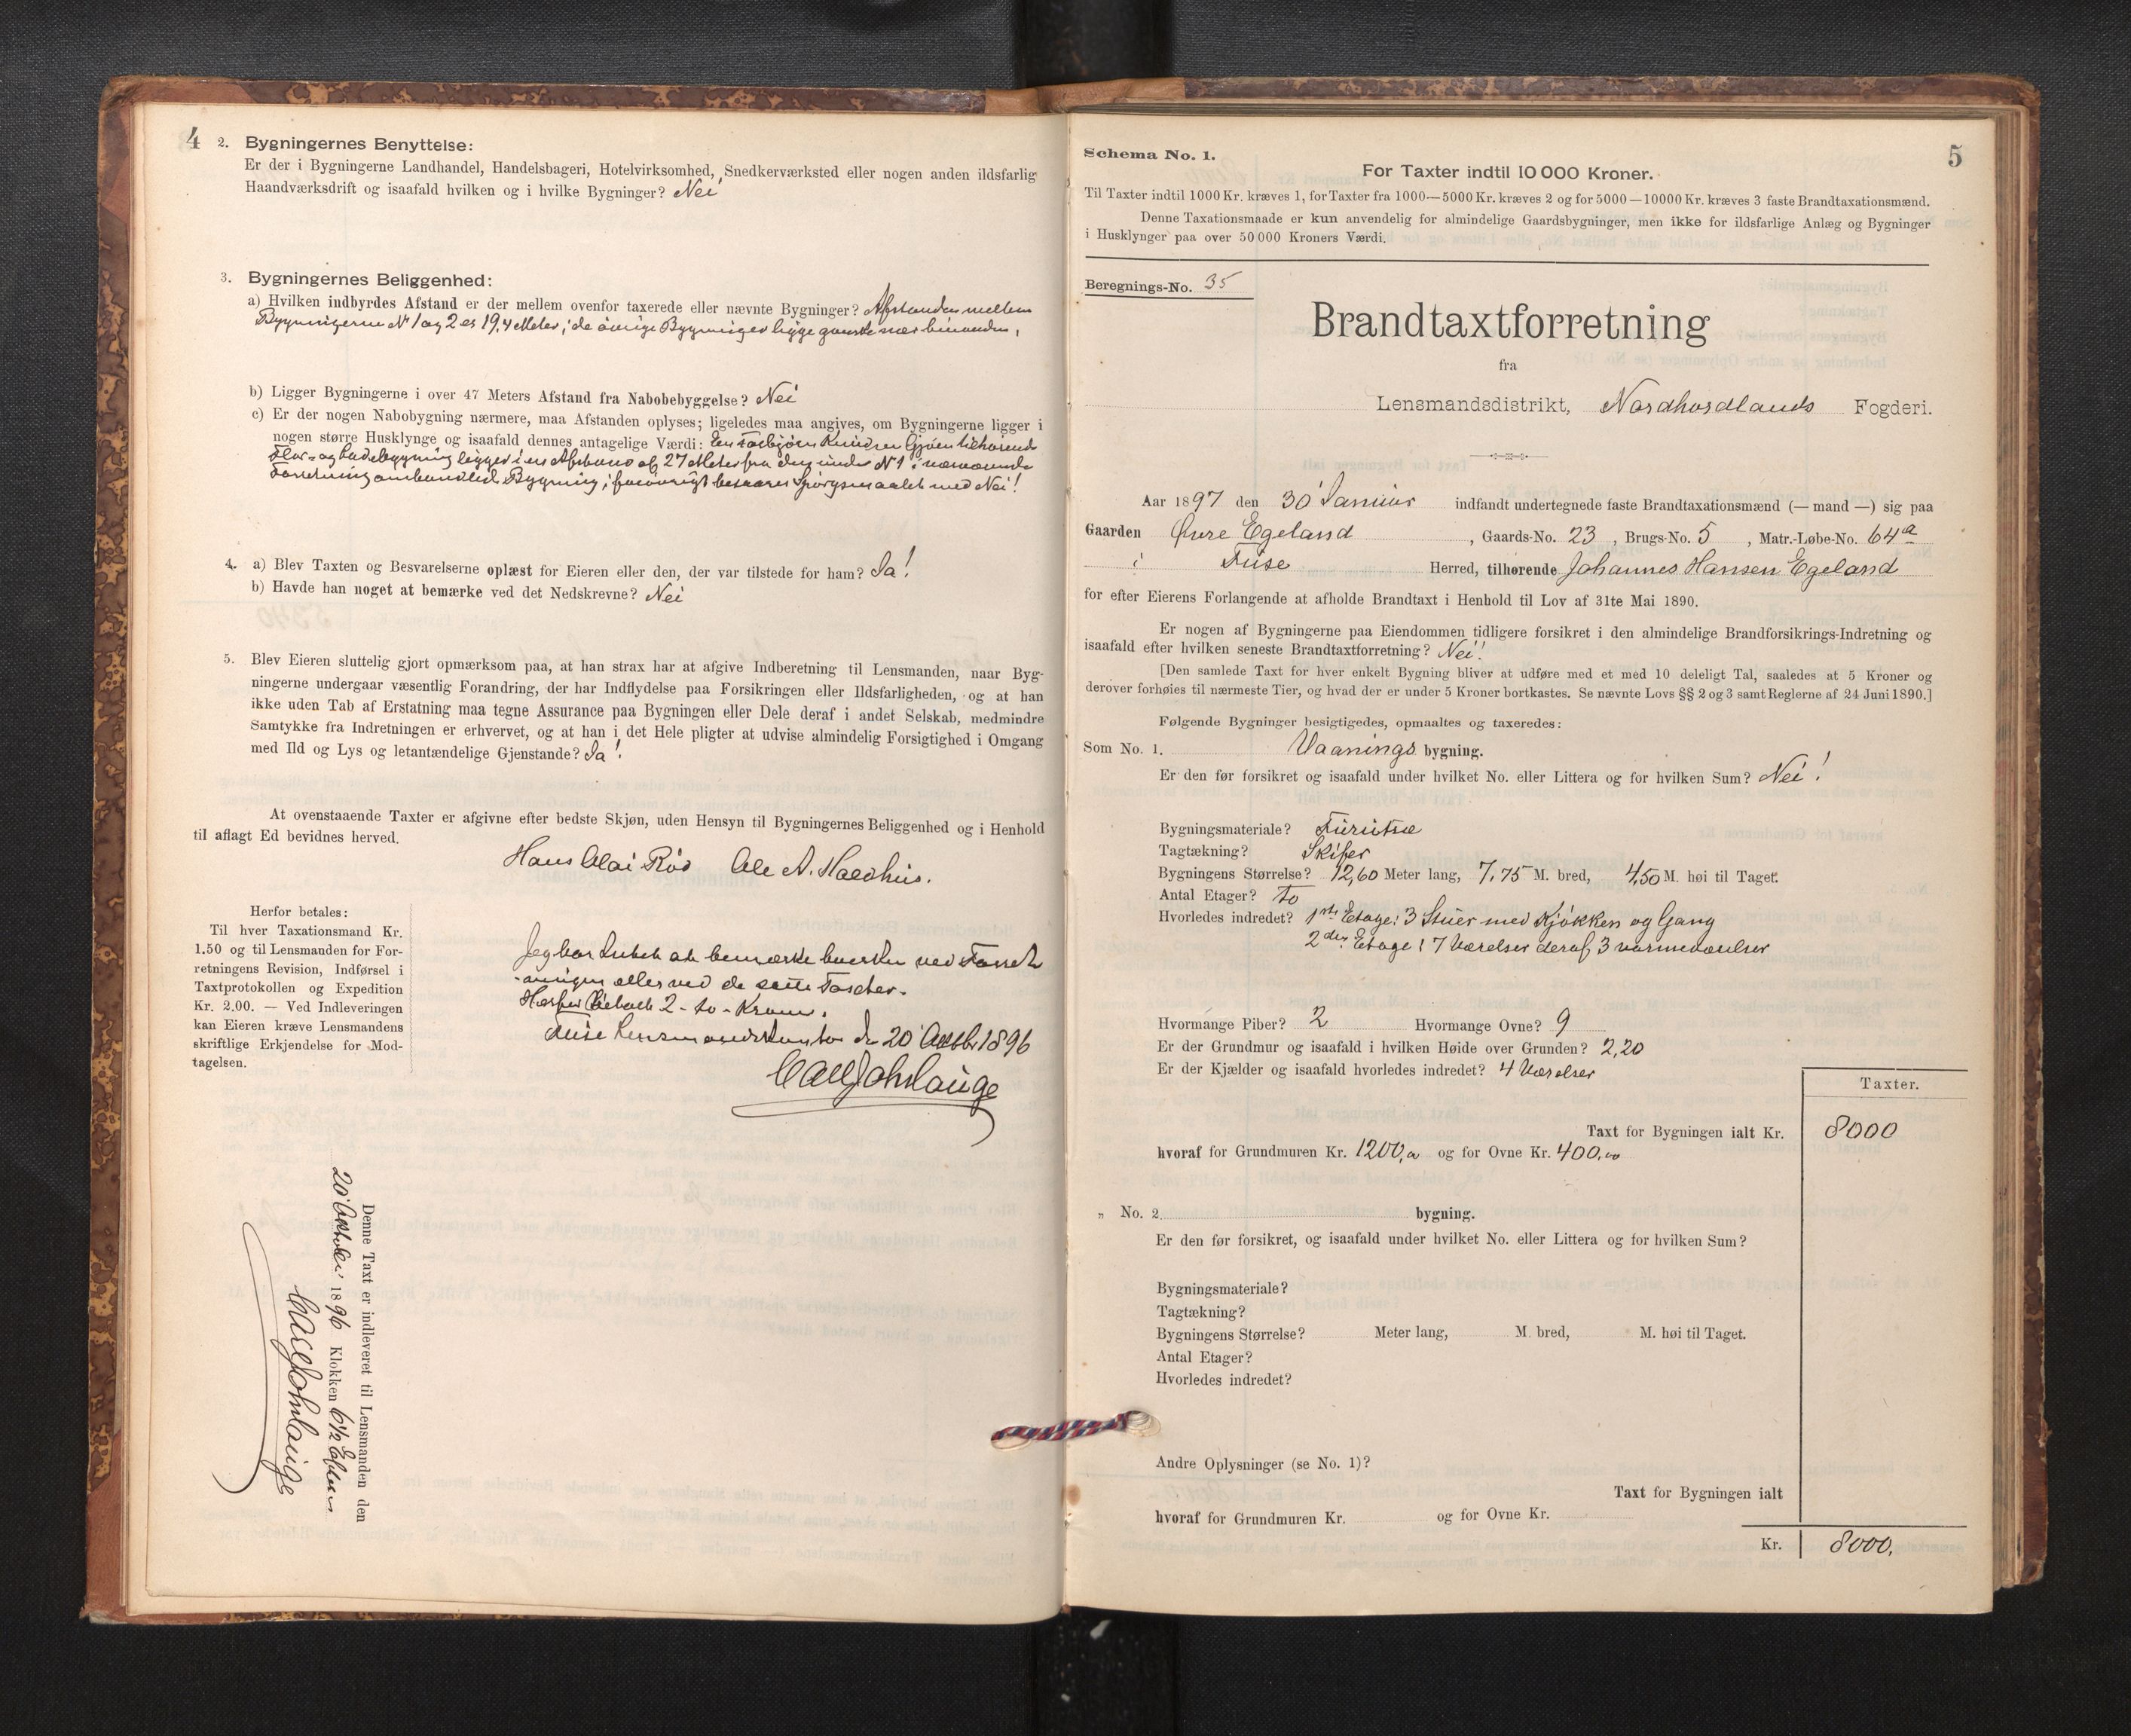 4
2. Bygningernes Benyttelse:
Er der i Bygningerne Landhandel, Handelsbageri, Hotelvirksomhed, Snedkerværksted eller nogen anden ildsfarlig
Haandværksdrift og isaafald hvilken og i hvilke Bygninger? Nei
3. Bygningernes Beliggenhed:
a) Hvilken indbyrdes Afstand er der mellem ovenfor taxerede eller nævnte Bygninger? Afstanden mellem
Bygningerne No 1 og 2 er 19,4 Meter; de øvrige Bygninger ligge ganske nær hinanden.
b) Ligger Bygningerne i over 47 Meters Afstand fra Nabobebyggelse? Nei
c) Er der nogen Nabobygning nærmere, maa Afstanden oplyses; ligeledes maa angives, om Bygningerne ligger i
nogen større Husklynge og isaafald dennes antagelige Værdi: En Torbjørn Knudsen Gjøen tilhørende
Flor- og Ladebygning ligger i en Afstand af 27 Meter fra den under No 1 i nærværende
Forretning omhandlede Bygning; forøvrigt besvares Spørgsmaalet med Nei!
4. a) Blev Taxten og Besvarelserne oplæst for Eieren eller den, der var tilstede for ham? Ja!
b) Havde han noget at bemærke ved det Nedskrevne? Nei
5. Blev Eieren sluttelig gjort opmærksom paa, at han strax har at afgive Indberetning til Lensmanden, naar Byg-
ningerne undergaar væsentlig Forandring, der har Indflydelse paa Forsikringen eller Ildsfarligheden, og at han
ikke uden Tab af Erstatning maa tegne Assurance paa Bygningen eller Dele deraf i andet Selskab, medmindre
Samtykke fra Indretningen er erhvervet, og at han i det Hele pligter at udvise almindelig Forsigtighed i Omgang
med Ild og Lys og letantændelige Gjenstande? Ja!
At ovenstaaende Taxter er afgivne efter bedste Skjøn, uden Hensyn til Bygningernes Beliggenhed og i Henhold
til aflagt Ed bevidnes herved.
Hans Olai Rød Ole A. Haldhus.
Herfor betales:
Til hver Taxationsmand Kr.
1.50 og til Lensmanden for For-
retningens Revision, Indførsel i
Taxtprotokollen og Expedition
Kr. 2.00. — Ved Indleveringen
kan Eieren kræve Lensmandens
skriftlige Erkjendelse for Mod-
tagelsen.
Jeg har Intet at bemærke hverken ved Forret-
ningen eller ved de satte Taxter.
Herfor betalt 2 - to - Kroner.
Fuse Lensmandskontor den 20 Oktbr 1896
Denne Taxt er indleveret til Lensmanden den
20 Oktober 1896 Klokken 6 1/2 Efterm
Schema No. 1.
5
For Taxter indtil 10 000 Kroner.
Til Taxter indtil 1000 Kr. kræves 1, for Taxter fra 1000—5000 Kr. kræves 2 og for 5000—10000 Kr. kræves 3 faste Brandtaxationsmænd.
Denne Taxationsmaade er kun anvendelig for almindelige Gaardsbygninger, men ikke for ildsfarlige Anlæg og Bygninger
i Husklynger paa over 50 000 Kroners Værdi.
Beregnings-No. 35
Brandtaxtforretning
fra
Lensmandsdistrikt, Nordhordlands Fogderi.
Aar 1897 den 30 Januar indfandt undertegnede faste Brandtaxationsmænd (— mand —) sig paa
Gaarden Øvre Egeland, Gaards-No. 23, Brugs-No. 5, Matr.-Løbe-No. 64a
i Fuse Herred, tilhørende Johannes Hansen Egeland
for efter Eierens Forlangende at afholde Brandtaxt i Henhold til Lov af 31te Mai 1890.
Er nogen af Bygningerne paa Eiendommen tidligere forsikret i den almindelige Brandforsikrings-Indretning og
isaafald efter hvilken seneste Brandtaxtforretning? Nei!
[Den samlede Taxt for hver enkelt Bygning bliver at udføre med et med 10 deleligt Tal, saaledes at 5 Kroner og
derover forhøies til nærmeste Tier, og hvad der er under 5 Kroner bortkastes. Se nævnte Lovs §§ 2 og 3 samt Reglerne af 24 Juni 1890.]
Følgende Bygninger besigtigedes, opmaaltes og taxeredes:
Som No. 1. Vaanings bygning.
Er den før forsikret og isaafald under hvilket No. eller Littera og for hvilken Sum? Nei!
Bygningsmateriale? Furutræ
Tagtækning? Skifer
Bygningens Størrelse? 12,60 Meter lang, 7,75 M. bred, 4,50 M. høi til Taget.
Antal Etager? To
Hvorledes indredet? 1ste Etage: 3 Stuer med Kjøkken og Gang
2den Etage: 7 Værelser deraf 3 varmeværelser
Hvormange Piber? 2 Hvormange Ovne? 9
Er der Grundmur og isaafald i hvilken Høide over Grunden? 2,20
Er der Kjælder og isaafald hvorledes indredet? 4 Værelser
Taxter.
Taxt for Bygningen ialt Kr. 8000
hvoraf for Grundmuren Kr. 1200,00 og for Ovne Kr. 400,00
„ No. 2. bygning.
Er den før forsikret, og isaafald under hvilket No. eller Littera og for hvilken Sum?
Bygningsmateriale?
Tagtækning?
Bygningens Størrelse? Meter lang, M. bred, M. høi til Taget.
Antal Etager?
Hvorledes indredet?
Andre Oplysninger (se No. 1)?
Taxt for Bygningen ialt
hvoraf for Grundmuren Kr. og for Ovne Kr.
Kr. 8000.